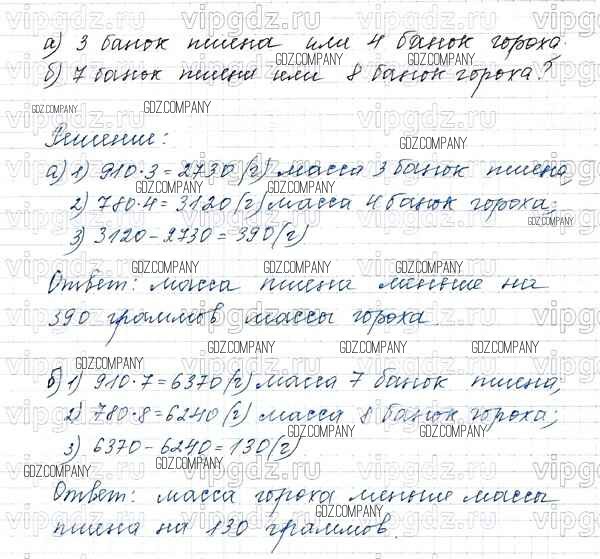 а) 3 банок пшена или 4 банок гороха.
б) 7 банок пшена или 8 банок гороха?
Решение:
а) 1) 910·3=2730 (г) масса 3 банок пшена
2) 780·4=3120 (г) масса 4 банок гороха;
3) 3120-2730=390 (г)
Ответ: масса пшена меньше на
390 граммов массы гороха.
б) 1) 910·7=6370 (г) масса 7 банок пшена;
2) 780·8=6240 (г) масса 8 банок гороха;
3) 6370-6240=130 (г)
Ответ: масса гороха меньше массы
пшена на 130 граммов.
vipgdz.ru
GDZ.COMPANY